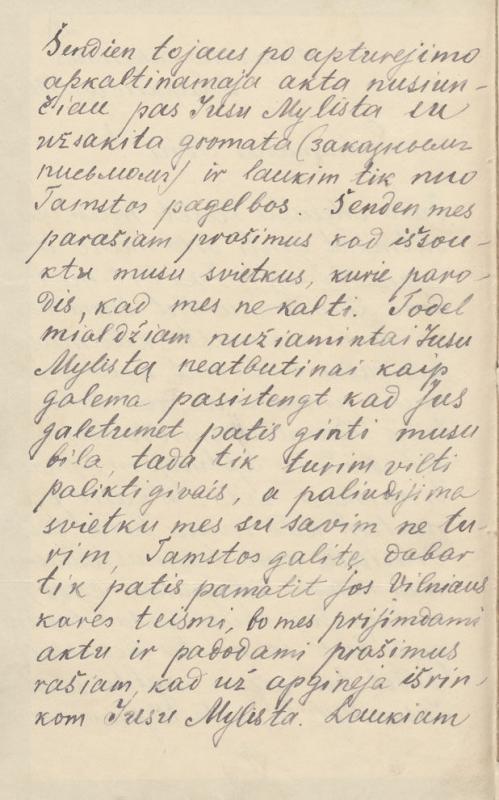 Šendien tojaus po apturejimo
apkaltinamaja akta nusiun-
čiau pas Jusu Mylista su
užsakita gromata (заказноемъ
писъмомъ) ir laukim tik nuo
Tamstos pagelbos. Šenden mes
parašiam prašimus kad iššou-
ktu musu svietkus, kurie paro-
dis, kad mes ne kalti. Todel
mialdžiam nužiamintai Jusu
Mylistą neatbutinai kaip
galema pasistengt kad Jus
galetumet patis ginti musu
bila, tada tik turim vilti
paliktigivais, a paliudijima
svietku mes su savim ne tu-
rim, Tamstos galite dabar
tik patis pamatit jos Vilniaus
kares teismi, bo mes prijimdami
aktu ir padodami prašimus
rašiam, kad už apgineja išrin-
kom Jusu Mylista. Laukiam